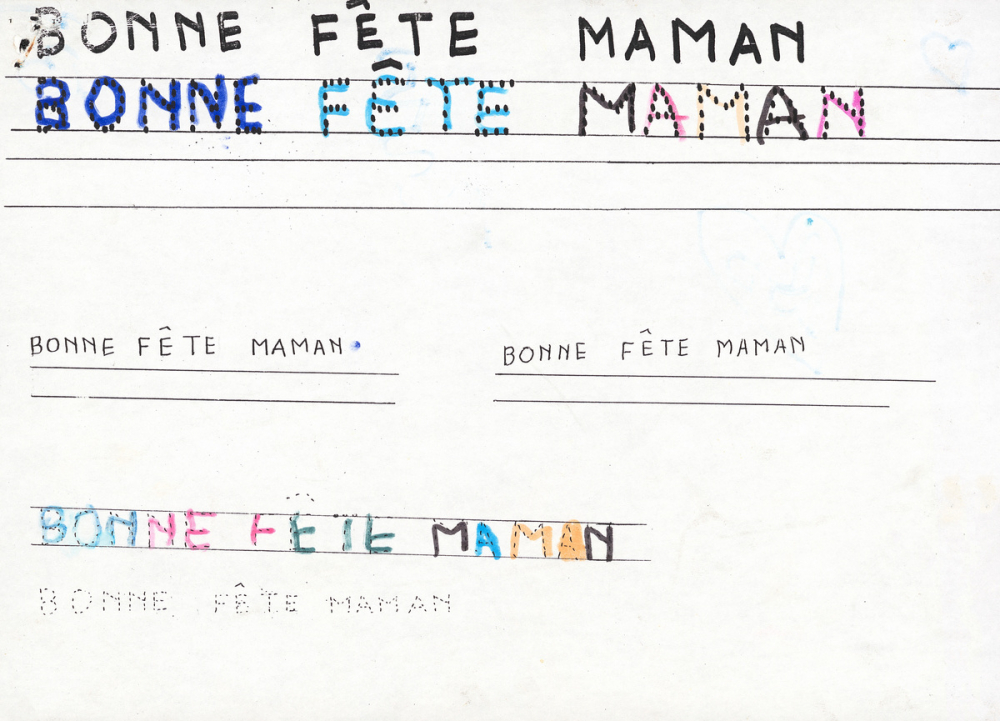 BONNE FÊTE MAMAN
BONNE FÊTE MAMAN
BONNE FÊTE MAMAN
BONNE FÊTE MAMAN
BONNE FÊTE MAMAN
BONNE FÊTE MAMAN